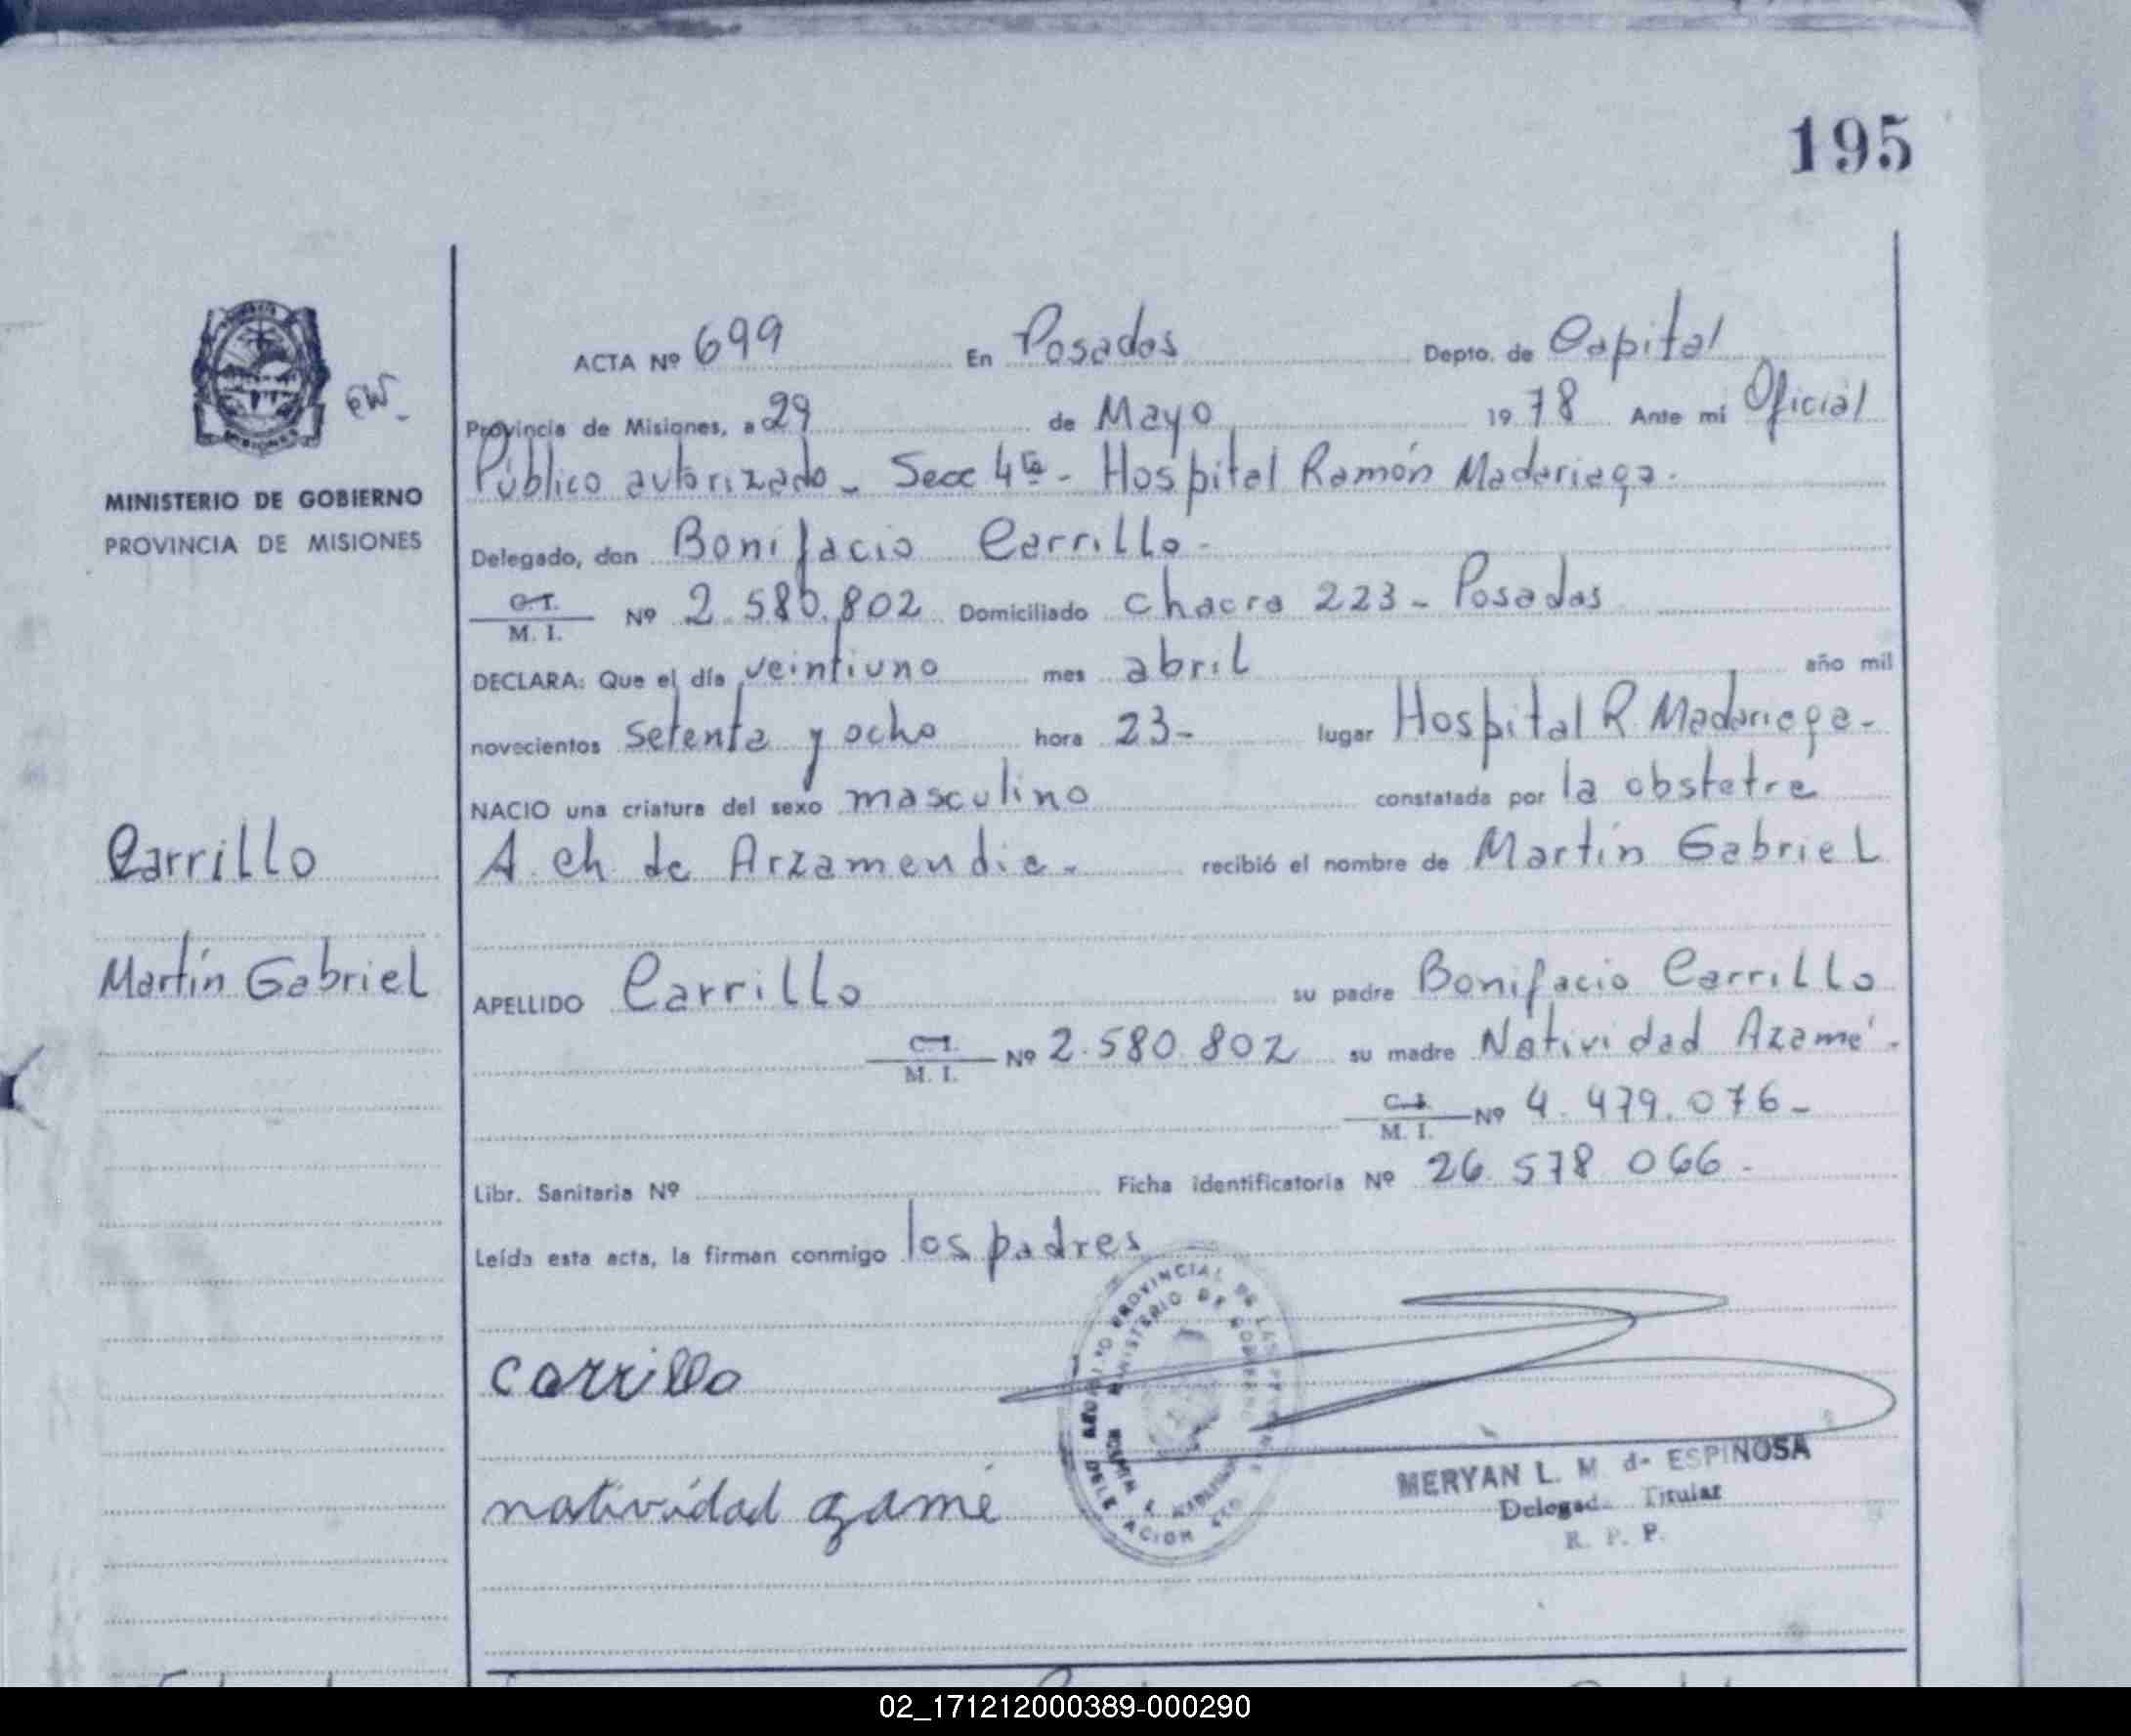 195
ACTA Nº 699 En Posadas Depto. de Capital
Provincia de Misiones, a 29 de Mayo 1978 Ante mí Oficial
Público autorizado - Secc 4ta - Hospital Ramón Madariaga.
MINISTERIO DE GOBIERNO
PROVINCIA DE MISIONES
Delegado, don Bonifacio Carrillo -
C.I. M. I. Nº 2.580.802 Domiciliado chacra 223 - Posadas
DECLARA: Que el día veintiuno mes abril año mil
novecientos setenta y ocho hora 23- lugar Hospital R. Madariaga-
NACIO una criatura del sexo masculino constatada por la obstetre
Carrillo
A. Ch. de Arzamendia- recibió el nombre de Martín Gabriel
Martín Gabriel
APELLIDO Carrillo su padre Bonifacio Carrillo
C.I. M. I. Nº 2.580.802 su madre Natividad Azamé -
C.I. M. I. Nº 4.479.076-
Libr. Sanitaria Nº Ficha identificatoria Nº 26.578 066 -
Leída esta acta, la firman conmigo los padres
carrillo
natividad azamé
MERYAN L. M. de ESPINOSA
Delegada Titular
R. P. P.
02_171212000389-000290